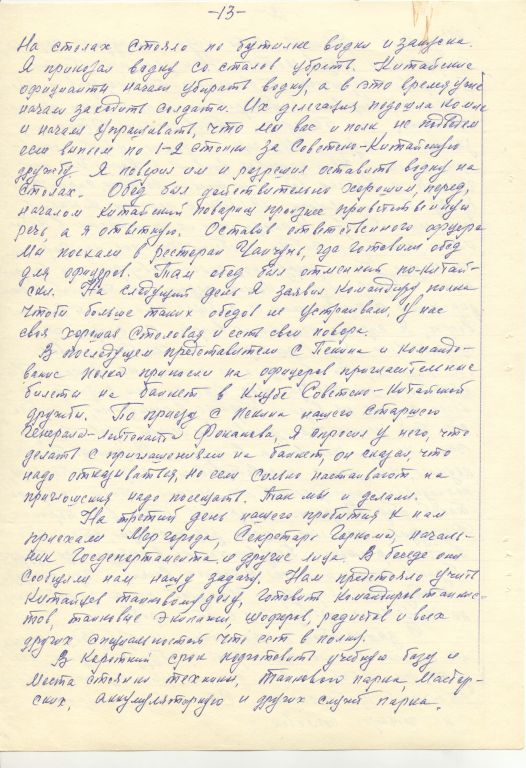 -13-
На столах стояло по бутылке водки и закуска.
Я приказал водку со столов убрать. Китайские
официанты начали убирать водку, а в это время уже
начали заходить солдаты. Их делегация подошла ко мне
и начали упрашивать, что мы вас и полк не подведем
если выпьем по 1-2 стопки за Советско-Китайскую
дружбу. Я поверил им и разрешил оставить водку на
столах. Обед был действительно хорошим, перед
началом китайский товарищ произнес приветственную
речь, а я ответную. Оставив ответственного офицера
мы поехали в ресторан Чанчунь, где готовили обед
для офицеров. Там обед был отменный по-китай-
ски. На следущий день я заявил командиру полка
чтобы больше таких обедов не устраивали, у нас
своя хорошая столовая и есть свои повара.
В последущем представители с Пекина и командо-
вание полка приносили на офицеров пригласительные
билеты на банкет в клубе Советско-Китайской
дружбы. По приезду с Пекина нашего старшего
Генерала-лейтенанта Фоканова, я спросил у него, что
делать с приглашениями на банкет, он сказал, что
надо отказываться, но если сильно настаивают на
приглошения надо посещать. Так мы и делали.
На третий день нашего прибытия к нам
приехали Мэр города, Секретарь Горкома, началь-
ник Госдепартамента и другие лица. В беседе они
сообщили нам нашу задачу. Нам предстояло учить
китайцев танковому делу, готовить командиров танкис-
тов, танковые экипажи, шоферов, радистов и всех
других специальностей что есть в полку.
В короткий срок подготовить учебную базу и
места стоянки техники, танкового парка, мастер-
ских, аккумуляторную и других служб парка.